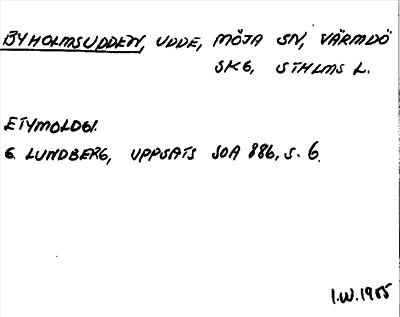 BYHOLMSUDDEN, UDDE, MÖJA SN, VÄRMDÖ
SKG, STHLMS L.
ETYMOLOGI.
G. LUNDBERG, UPPSATS SOA 886, S. 6.
I.W. 1985